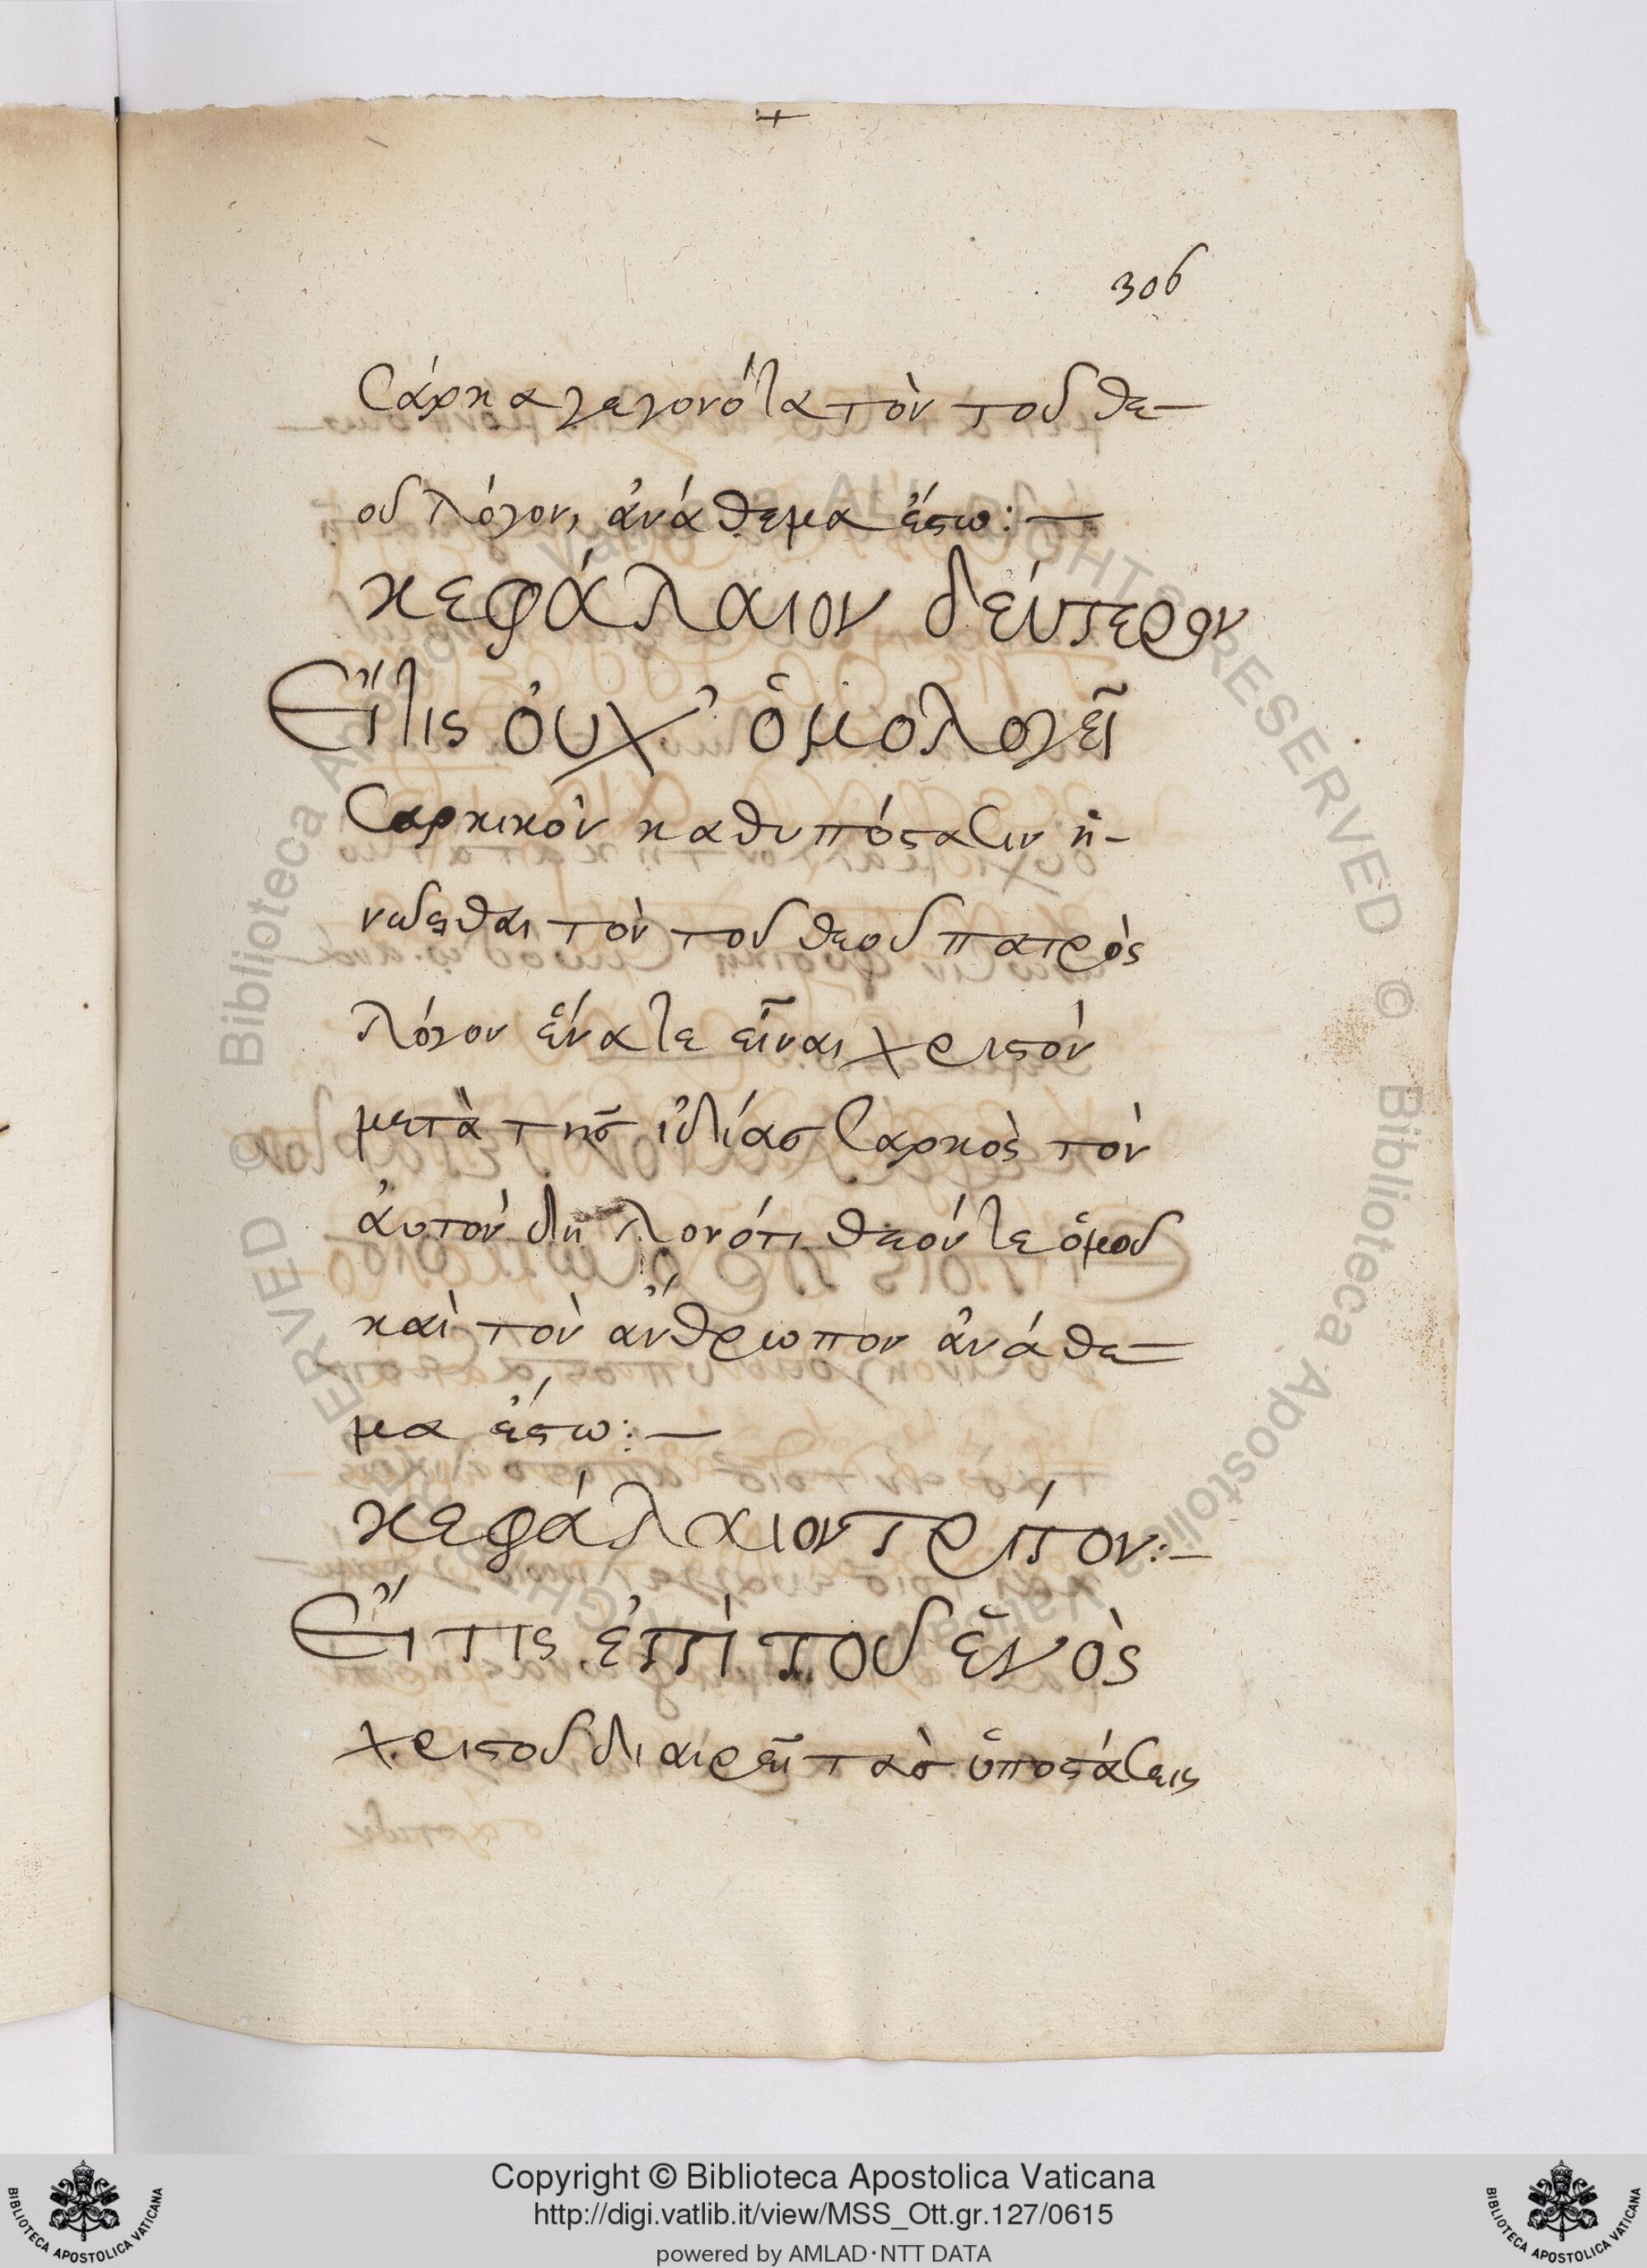 306
Σάρκα γεγονότα τὸν τοῦ θε-
οῦ λόγον, ἀνάθεμα ἔστω:—
κεφάλαιον δεύτερον
Εἴ τις ὀυχ' ὁμολογεῖ
Σαρκικὸν καθυπόστασιν ἡ-
νῶσθαι τὸν τοῦ θεοῦ πατρὸς
λόγον ἕνα τε εἶναι χριστὸν
μετὰ τῆς ἰδίας σαρκὸς τὸν
ἀυτὸν δηλονότι θεόν τε ὁμοῦ
καὶ τὸν ἄνθρωπον ἀνάθε-
μα ἔστω:—
κεφάλαιον τρίτον:—
Εἴ τις ἐπὶ τοῦ ἑνὸς
χριστοῦ διαιρεῖ τὰς ὑποστάσεις
Copyright © Biblioteca Apostolica Vaticana
http://digi.vatlib.it/view/MSS_Ott.gr.127/0615
powered by AMLAD·NTT DATA
BIBLIOTECA APOSTOLICA VATICANA
BIBLIOTECA APOSTOLICA VATICANA